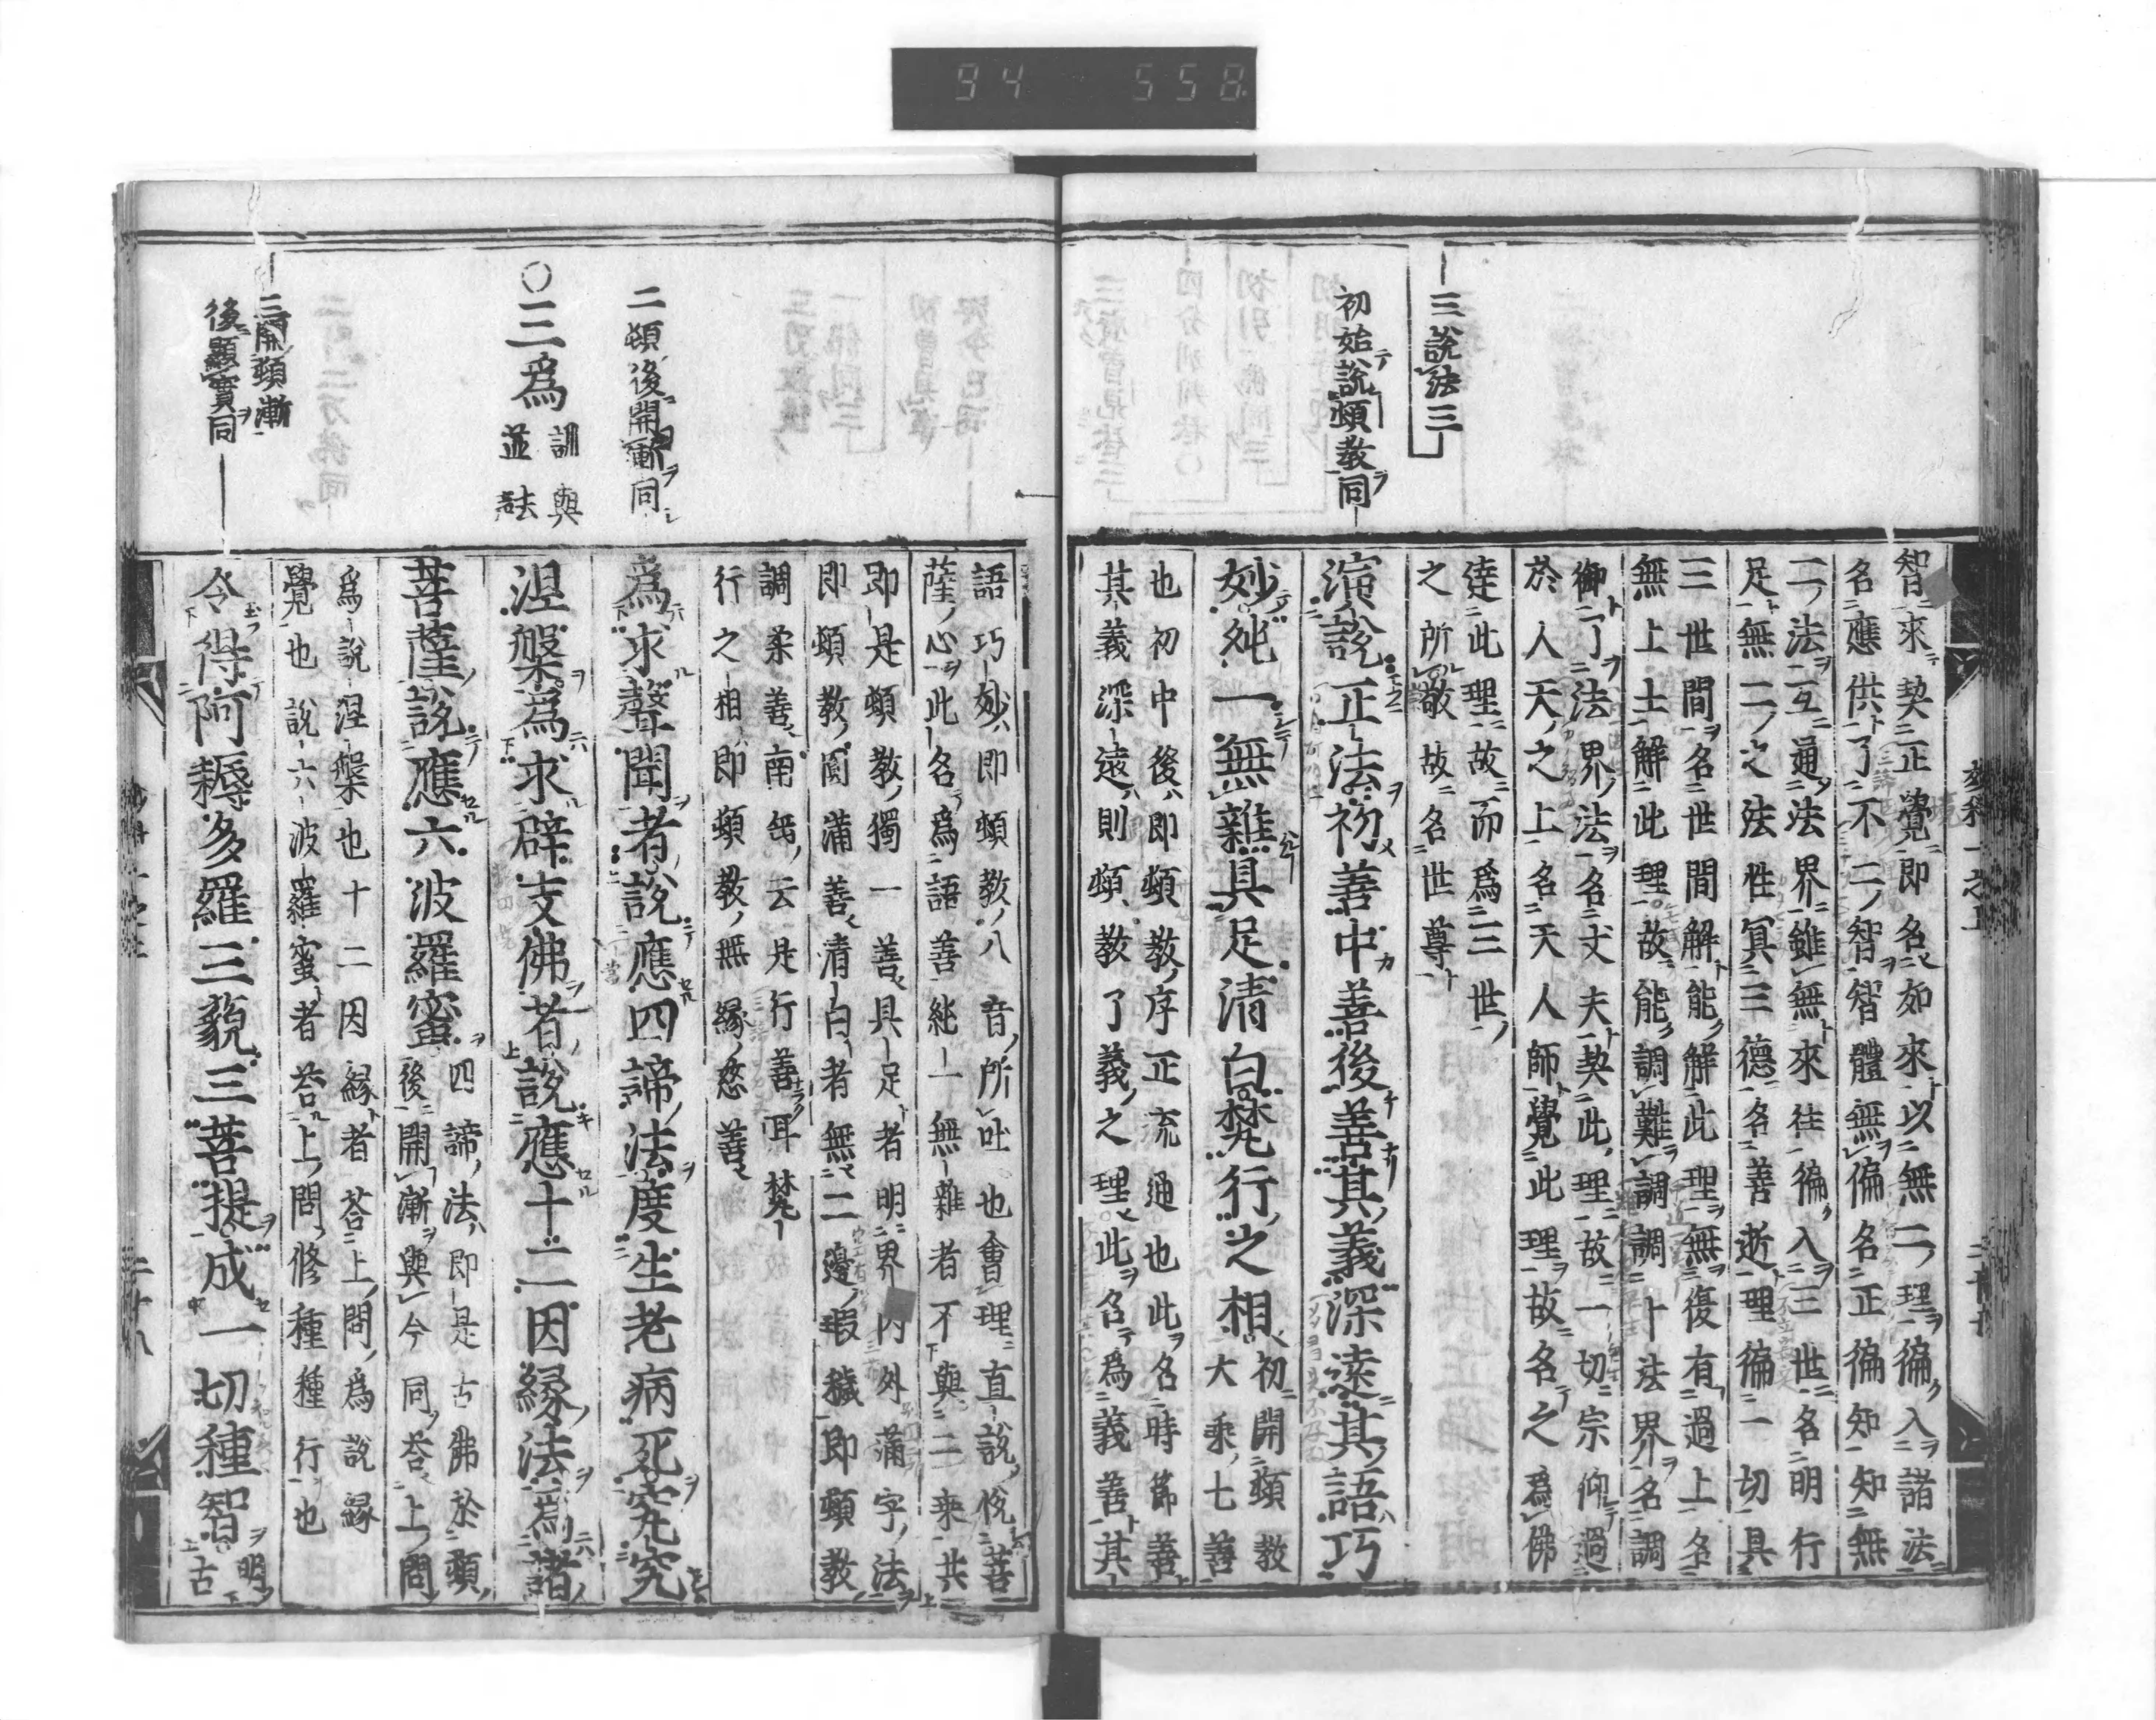 94 558
三說法三
初始說頓教同
智來契三正覺即名如來以無二理徧入諸法
名應供了不二智智體無偏名正徧知知無
二法互通法界雖無來往徧入三世名明行
足無二之法性冥三德名善逝理徧一切具
三世間名世間解能解此理無復有過上名
無上士解此理故能調難調調十法界名調
御了法界法名丈夫契此理故一切宗仰過
於人天之上名天人師覺此理故名之爲佛
達此理故而爲三世
之所敬故名世尊
演說正法初善中善後善其義深遠其語巧
妙純一無雜具足清白梵行之相
初開頓教
大乘七善
也初中後即頓教序正流通也此名時節善
其義深遠則頓教了義之理此名爲義善其
語巧妙即頓教八音所吐也會理直說悅菩
薩心此名爲語善純一無雜者不與二乘共
即是頓教獨一善具足者明界內外滿字法
即頓教圓滿善清白者無二邊瑕穢即頓教
調柔善南岳云是行善耳梵
行之相即頓教無緣慈善
二頓後開漸同
○三爲
訓與
並去
爲求聲聞者說應四諦法度生老病死究究
涅槃爲求辟支佛者說應十二因緣法爲諸
菩薩說應六波羅蜜
四諦法即是古佛於頓
後開漸與今同答上問
爲說涅槃也十二因緣者答上問爲說緣
覺也說六波羅蜜者答上問修種種行也
三開頓漸
後顯實同
令得阿耨多羅三藐三菩提成一切種智
明
古